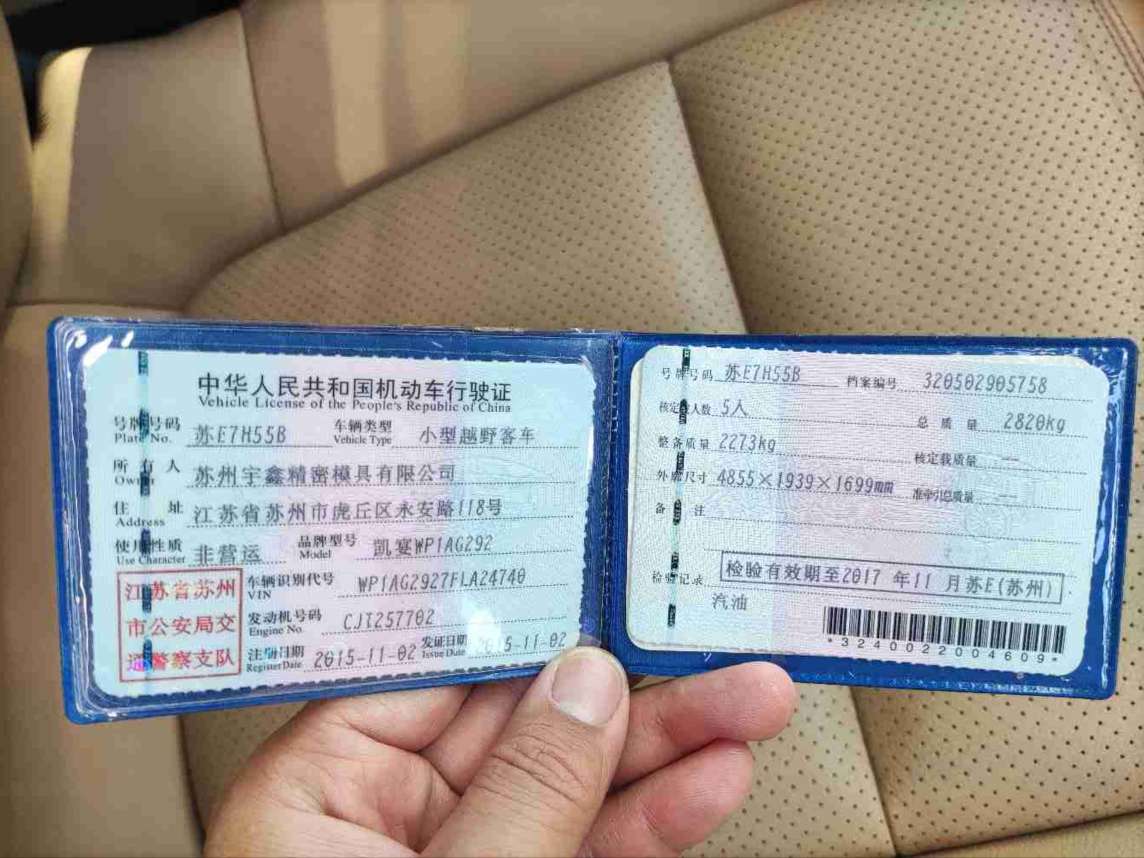 中华人民共和国机动车行驶证
Vehicle License of the People's Republic of China
号牌号码 苏E7H55B 车辆类型 小型越野客车
Plate No. Vehicle Type
所有人 苏州宇鑫精密模具有限公司
Owner
住址 江苏省苏州市虎丘区永安路118号
Address
使用性质 非营运 品牌型号 凯宴WP1AG292
Use Character Model
江苏省苏州
市公安局交
通警察支队
车辆识别代号 WP1AG2927FLA24740
VIN
发动机号码 CJT257702
Engine No.
注册日期 2015-11-02 发证日期 2015-11-02
Register Date Issue Date
号牌号码 苏E7H55B 档案编号 320502905758
核定载人数 5人 总质量 2820kg
整备质量 2273kg 核定载质量 --
外廓尺寸 4855×1939×1699mm 准牵引总质量 --
备注
检验记录 检验有效期至2017年11月苏E(苏州)
汽油
*3240022004609*